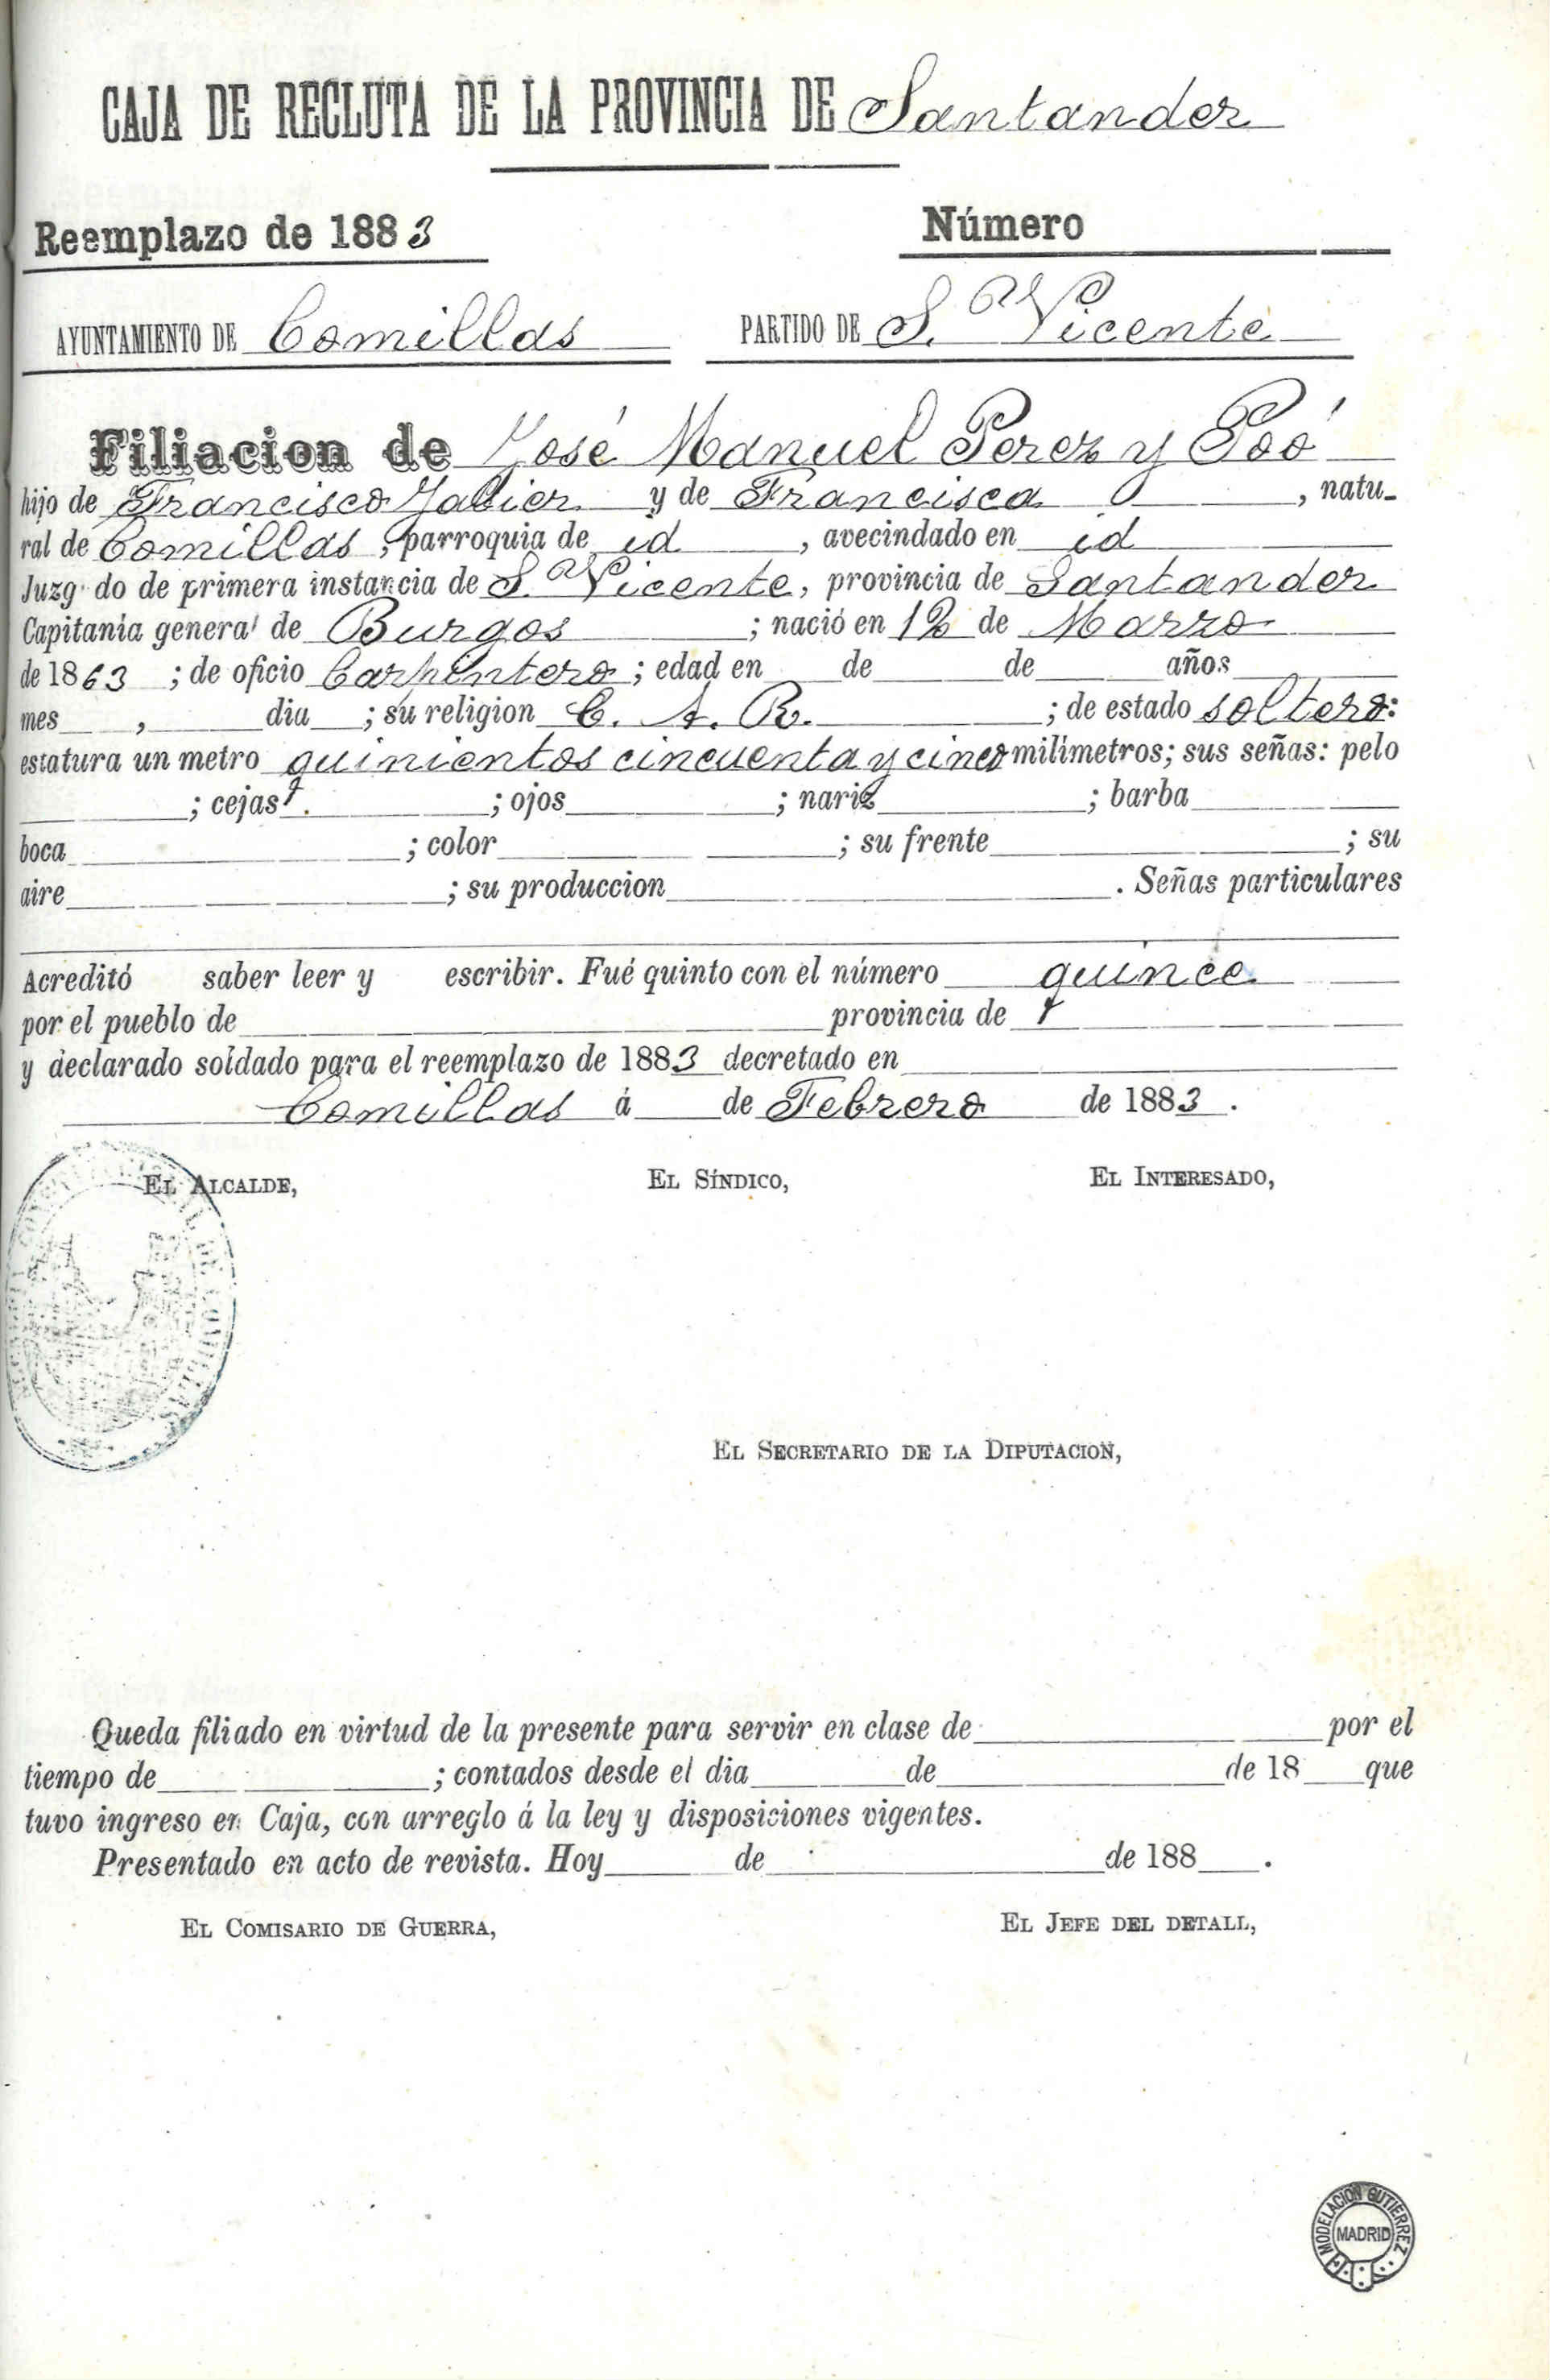 CAJA DE RECLUTA DE LA PROVINCIA DE Santander
Reemplazo de 1883 Número
AYUNTAMIENTO DE Comillas PARTIDO DE S. Vicente
Filiacion de José Manuel Perez y Poó
hijo de Francisco Jabier y de Francisca, natu-
ral de Comillas, parroquia de id, avecindado en id
Juzgdo de primera instancia de S. Vicente, provincia de Santander
Capitanía general de Burgos; nació en 12 de Marzo
de 1863; de oficio Carpintero; edad en de de años
mes, dia; su religion C. A. R.; de estado soltero:
estatura un metro quinientos cincuenta y cinco milímetros; sus señas: pelo
; cejas; ojos; nariz; barba
boca; color; su frente; su
aire; su produccion. Señas particulares
Acreditó saber leer y escribir. Fué quinto con el número quince
por el pueblo de provincia de
y declarado soldado para el reemplazo de 1883 decretado en
Comillas á de Febrero de 1883.
EL ALCALDE, EL SÍNDICO, EL INTERESADO,
EL SECRETARIO DE LA DIPUTACION,
Queda filiado en virtud de la presente para servir en clase de por el
tiempo de; contados desde el dia de de 18 que
tuvo ingreso en Caja, con arreglo á la ley y disposiciones vigentes.
Presentado en acto de revista. Hoy de de 188.
EL COMISARIO DE GUERRA, EL JEFE DEL DETALL,
MODELACION GUTIERREZ
MADRID